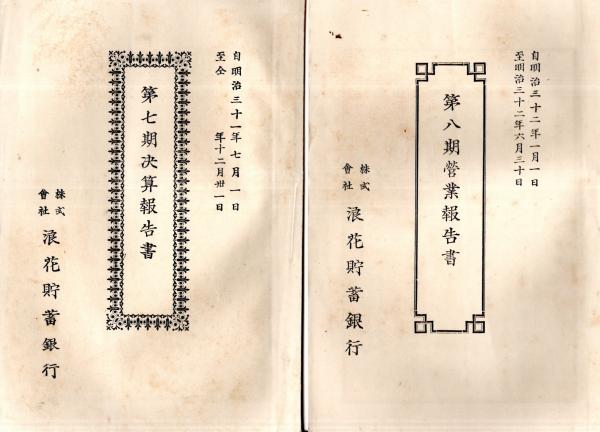 自明治三十二年一月一日
至明治三十二年六月三十日
第八期營業報告書
株式會社浪花貯蓄銀行
自明治三十一年七月一日
至仝年十二月卅一日
第七期決算報告書
株式會社浪花貯蓄銀行